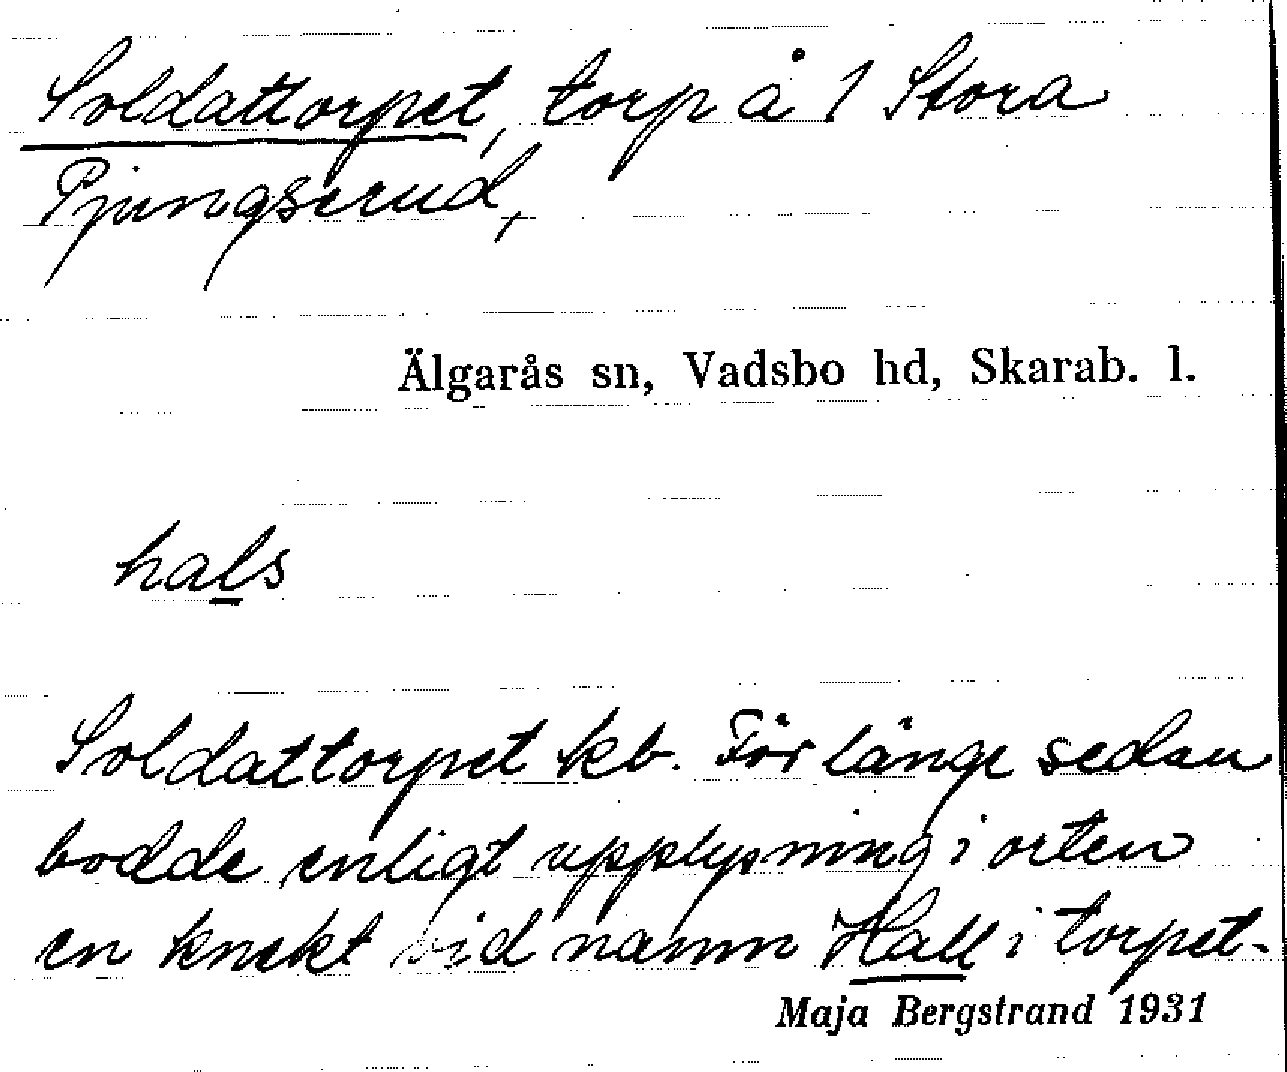 Soldattorpet, torp å 1 Stora
Pjungserud,
Älgarås sn, Vadsbo hd, Skarab. l.
hals
Soldattorpet kb. För länge sedan
bodde enligt upplysning i orten
en knekt vid namn Hall i torpet.
Maja Bergstrand 1931